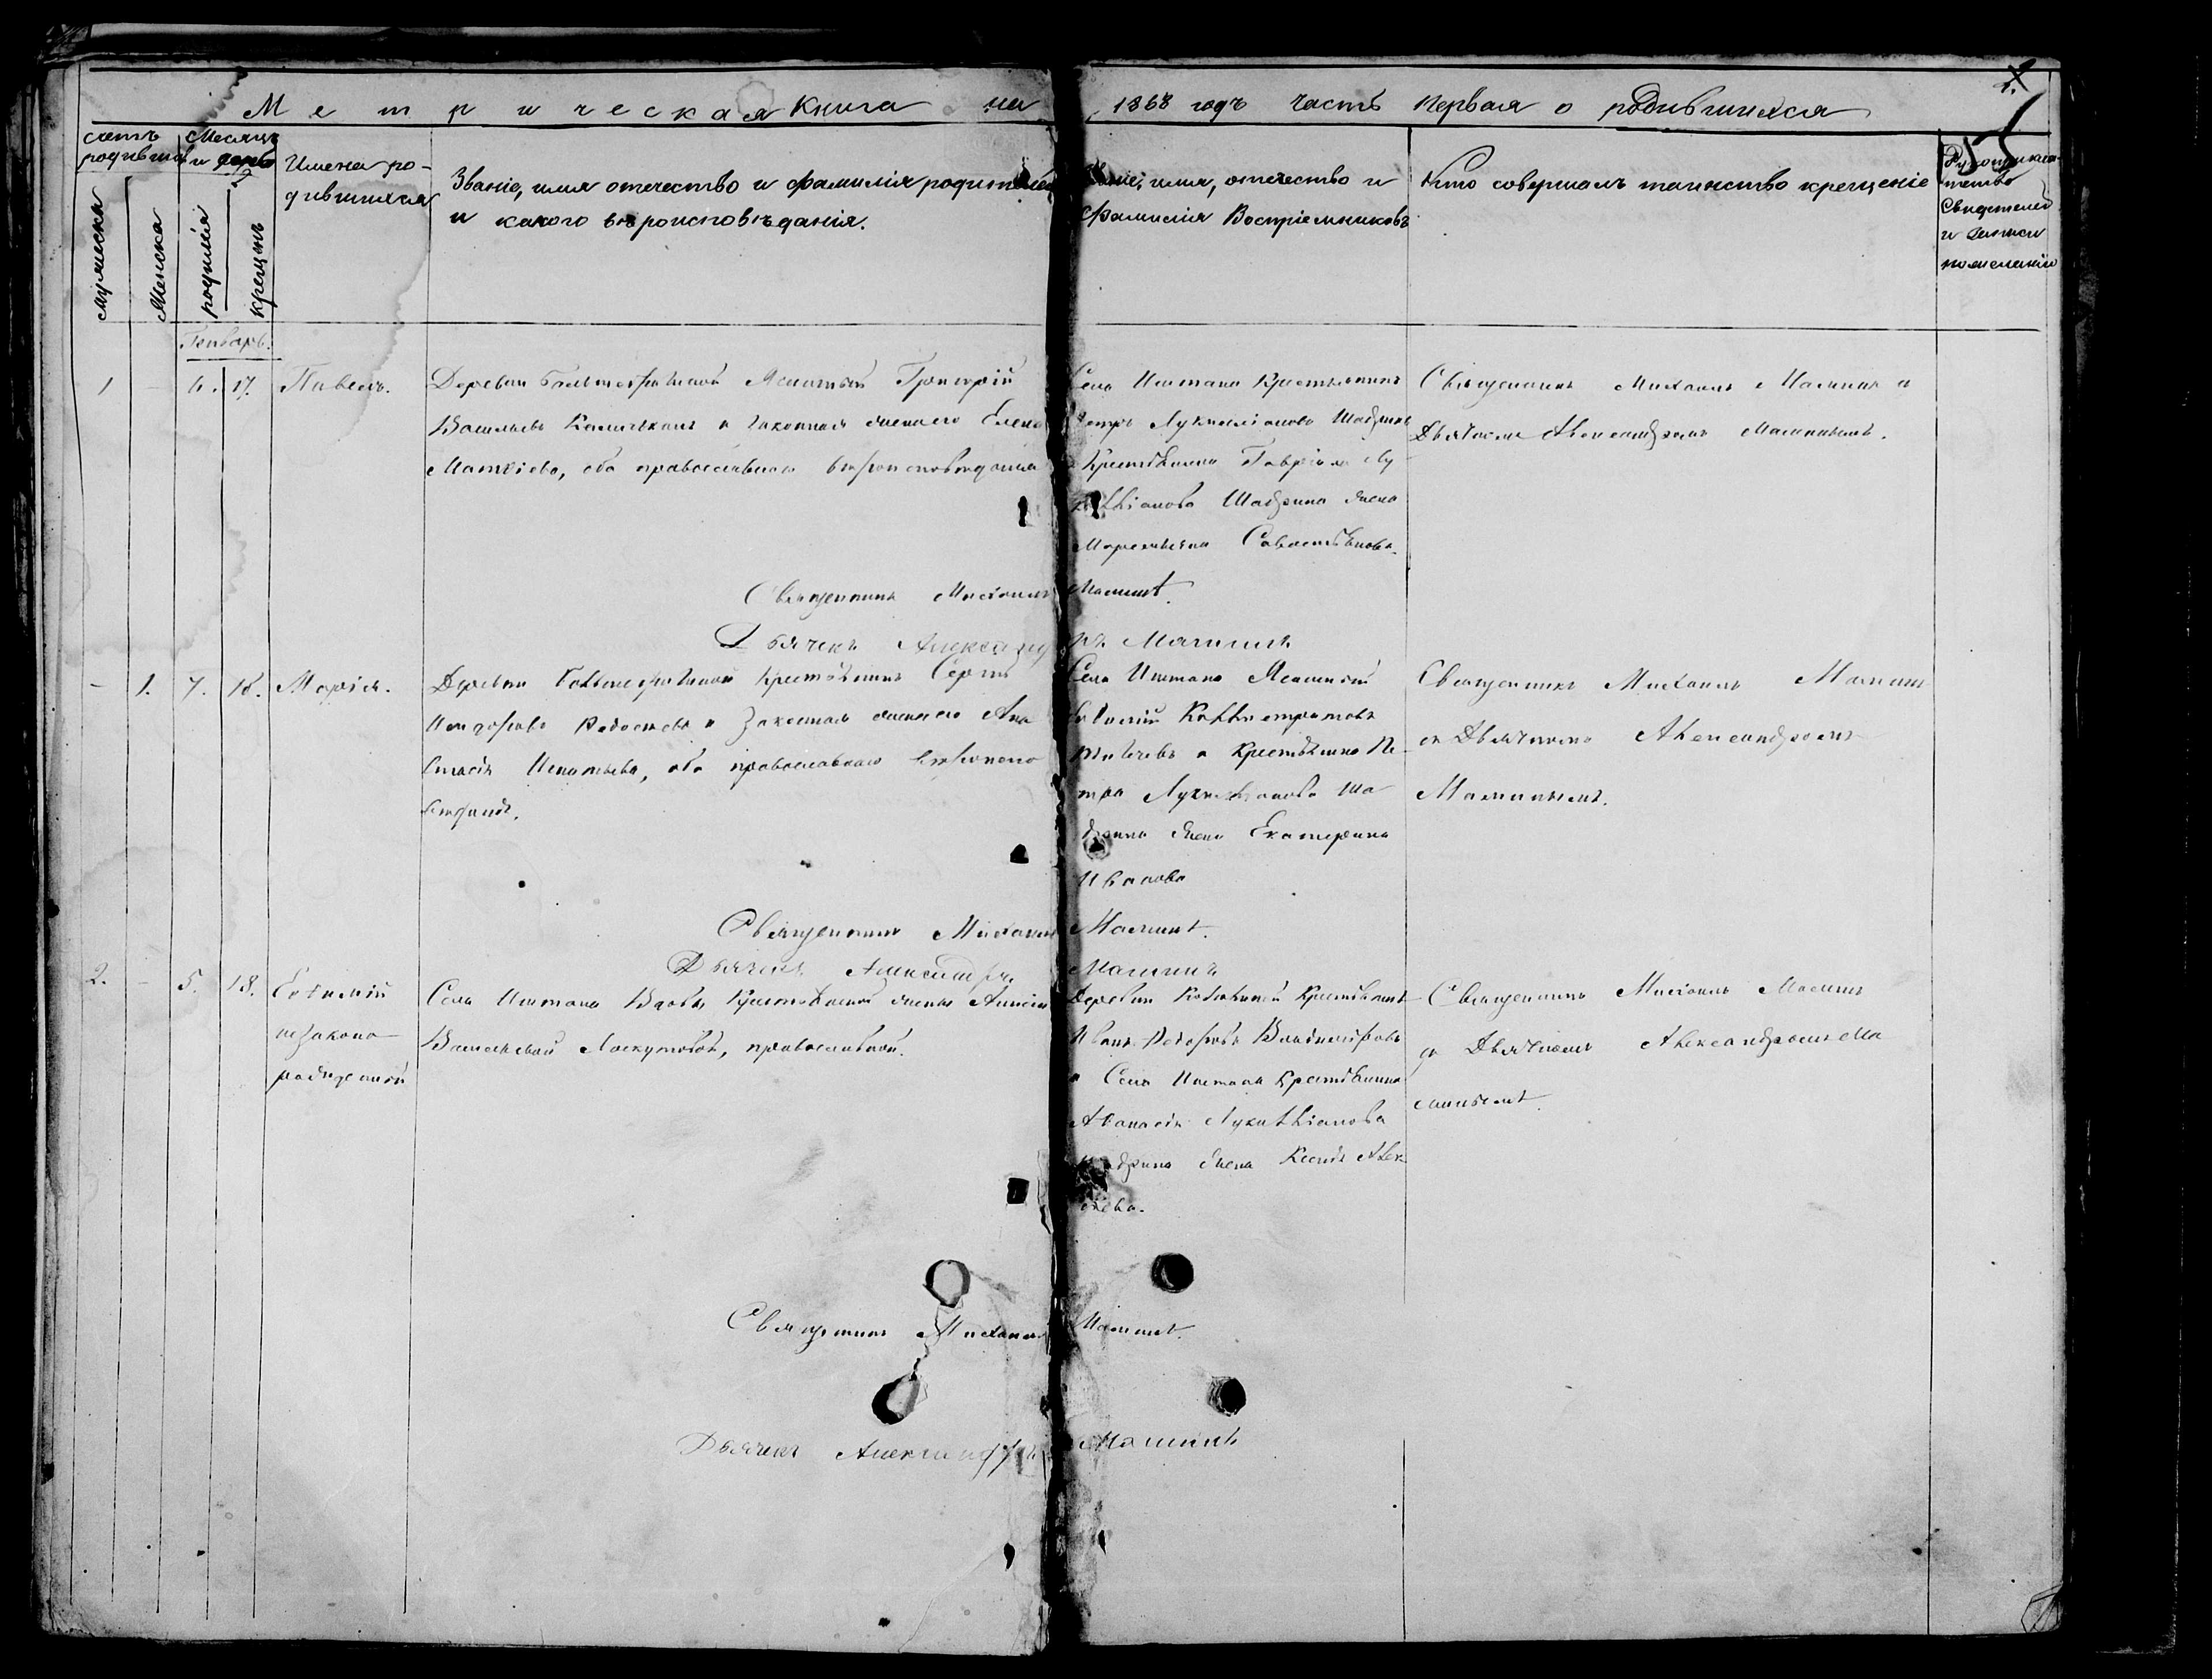 Метрическая Книга на 1868 годъ часть первая о родившихся
счетъ родившихся
Месяцъ и день
мужеска
женска
рождения
крещен
Имена ро-
дившихся
Званіе, имя отечество и фамилія родителей
и какого вѣроисповѣданія.
Званіе, имя, отечество и
фамилія Воспріемниковъ
Кто совершалъ таинство крещеніе
Рукоприклад-
тельство
Свидетелей
и записи
по желанію
Генварь.
1 - 6. 17. Павелъ.
Деревни Ясашный Григорій
Васильевъ и законная жена его Елена
Матѳіева, оба православнаго вѣроисповѣданія
Села Иштана Крестьянинъ
Петръ Лукиліановъ Шадринъ
и Крестьянина Гавріила Лу-
Шадрина жена
Савостьянова.
Священникъ Михаилъ Малинъ и
Дьячкомъ Александромъ Малинымъ.
Священникъ Михаилъ Малинъ.
Дьячекъ Александръ Малининъ
- 1. 7. 18. Марія.
Деревни Крестьянинъ Сергій
и Законная жена его Ана
стасія Игнатьева, оба православнаго вѣроиспо
вѣданія.
Села Иштана Ясашный
и Крестьянина Пе-
тра Лукиліанова Ша
дрина жена Екатерина
Иванова
Священникъ Михаилъ Малинъ
съ Дьячкомъ Александромъ
Малинымъ.
Священникъ Михаилъ Малинъ.
Дьячекъ Александръ Малининъ
2. - 5. 18. Евѳимій
незаконо-
рожденной
Села Иштана Вдовы Крестьянской жены Анисіи
Васильевой Лоскутовой, православной.
Деревни Крестьянинъ
Иванъ Ѳедоровъ Владиміровъ
и Села Иштана Крестьянина
Аѳанасія Лукиліанова
Шадрина жена Ксенія Алек
сѣева.
Священникъ Михаилъ Малинъ
съ Дьячкомъ Александромъ Ма
линымъ.
Священникъ Михаилъ Малинъ.
Дьячекъ Александръ Малининъ